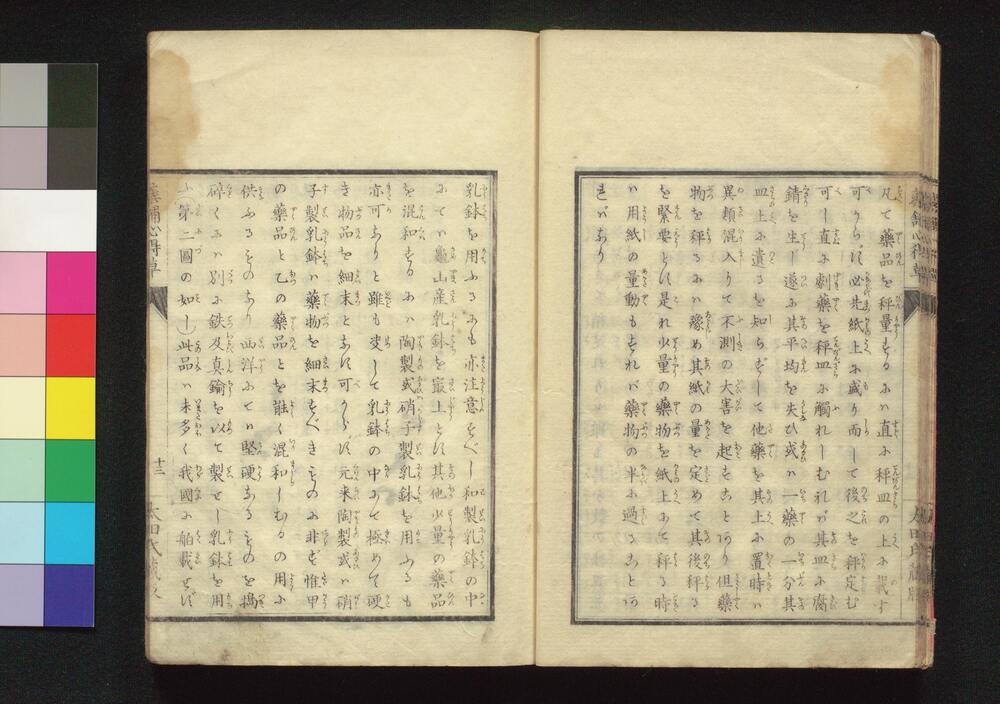 凡て藥品を秤量するには直に秤皿の上に載す
可らず必先紙上に盛り而して後之を秤定む
可し直に劇藥を秤皿に觸れしむれバ其皿に腐
錆を生し遂に其平均を失ひ或は一藥の一分其
皿上に遺るを知らずして他藥を其上に置時ハ
異類混入りて不測の大害を起すことあり但藥
物を秤るにハ豫め其紙の量を定めて其後秤る
を緊要とす是れ少量の藥物を紙上にて秤る時
ハ用紙の量動もすれバ藥物の半に過ることあ
れバなり
乳鉢を用ふるにも亦注意すべし和製乳鉢の中
にてハ龜山産乳鉢を最上とす其他少量の藥品
を混和するにハ陶製或硝子製乳鉢を用ふるも
亦可なりと雖も决して乳鉢の中にて極めて硬
き物品を細末とす可らず元来陶製或ハ硝
子製乳鉢ハ藥物を細末すべきものに非ず惟甲
の藥品と乙の藥品とを能く混和しむるの用に
供ふるものなり西洋にてハ堅硬なるものを搗
碎くにハ別に鉄及真鍮を以て製せし乳鉢を用
ふ第二圖の如し此品ハ未多く我國に舶載せず
十三